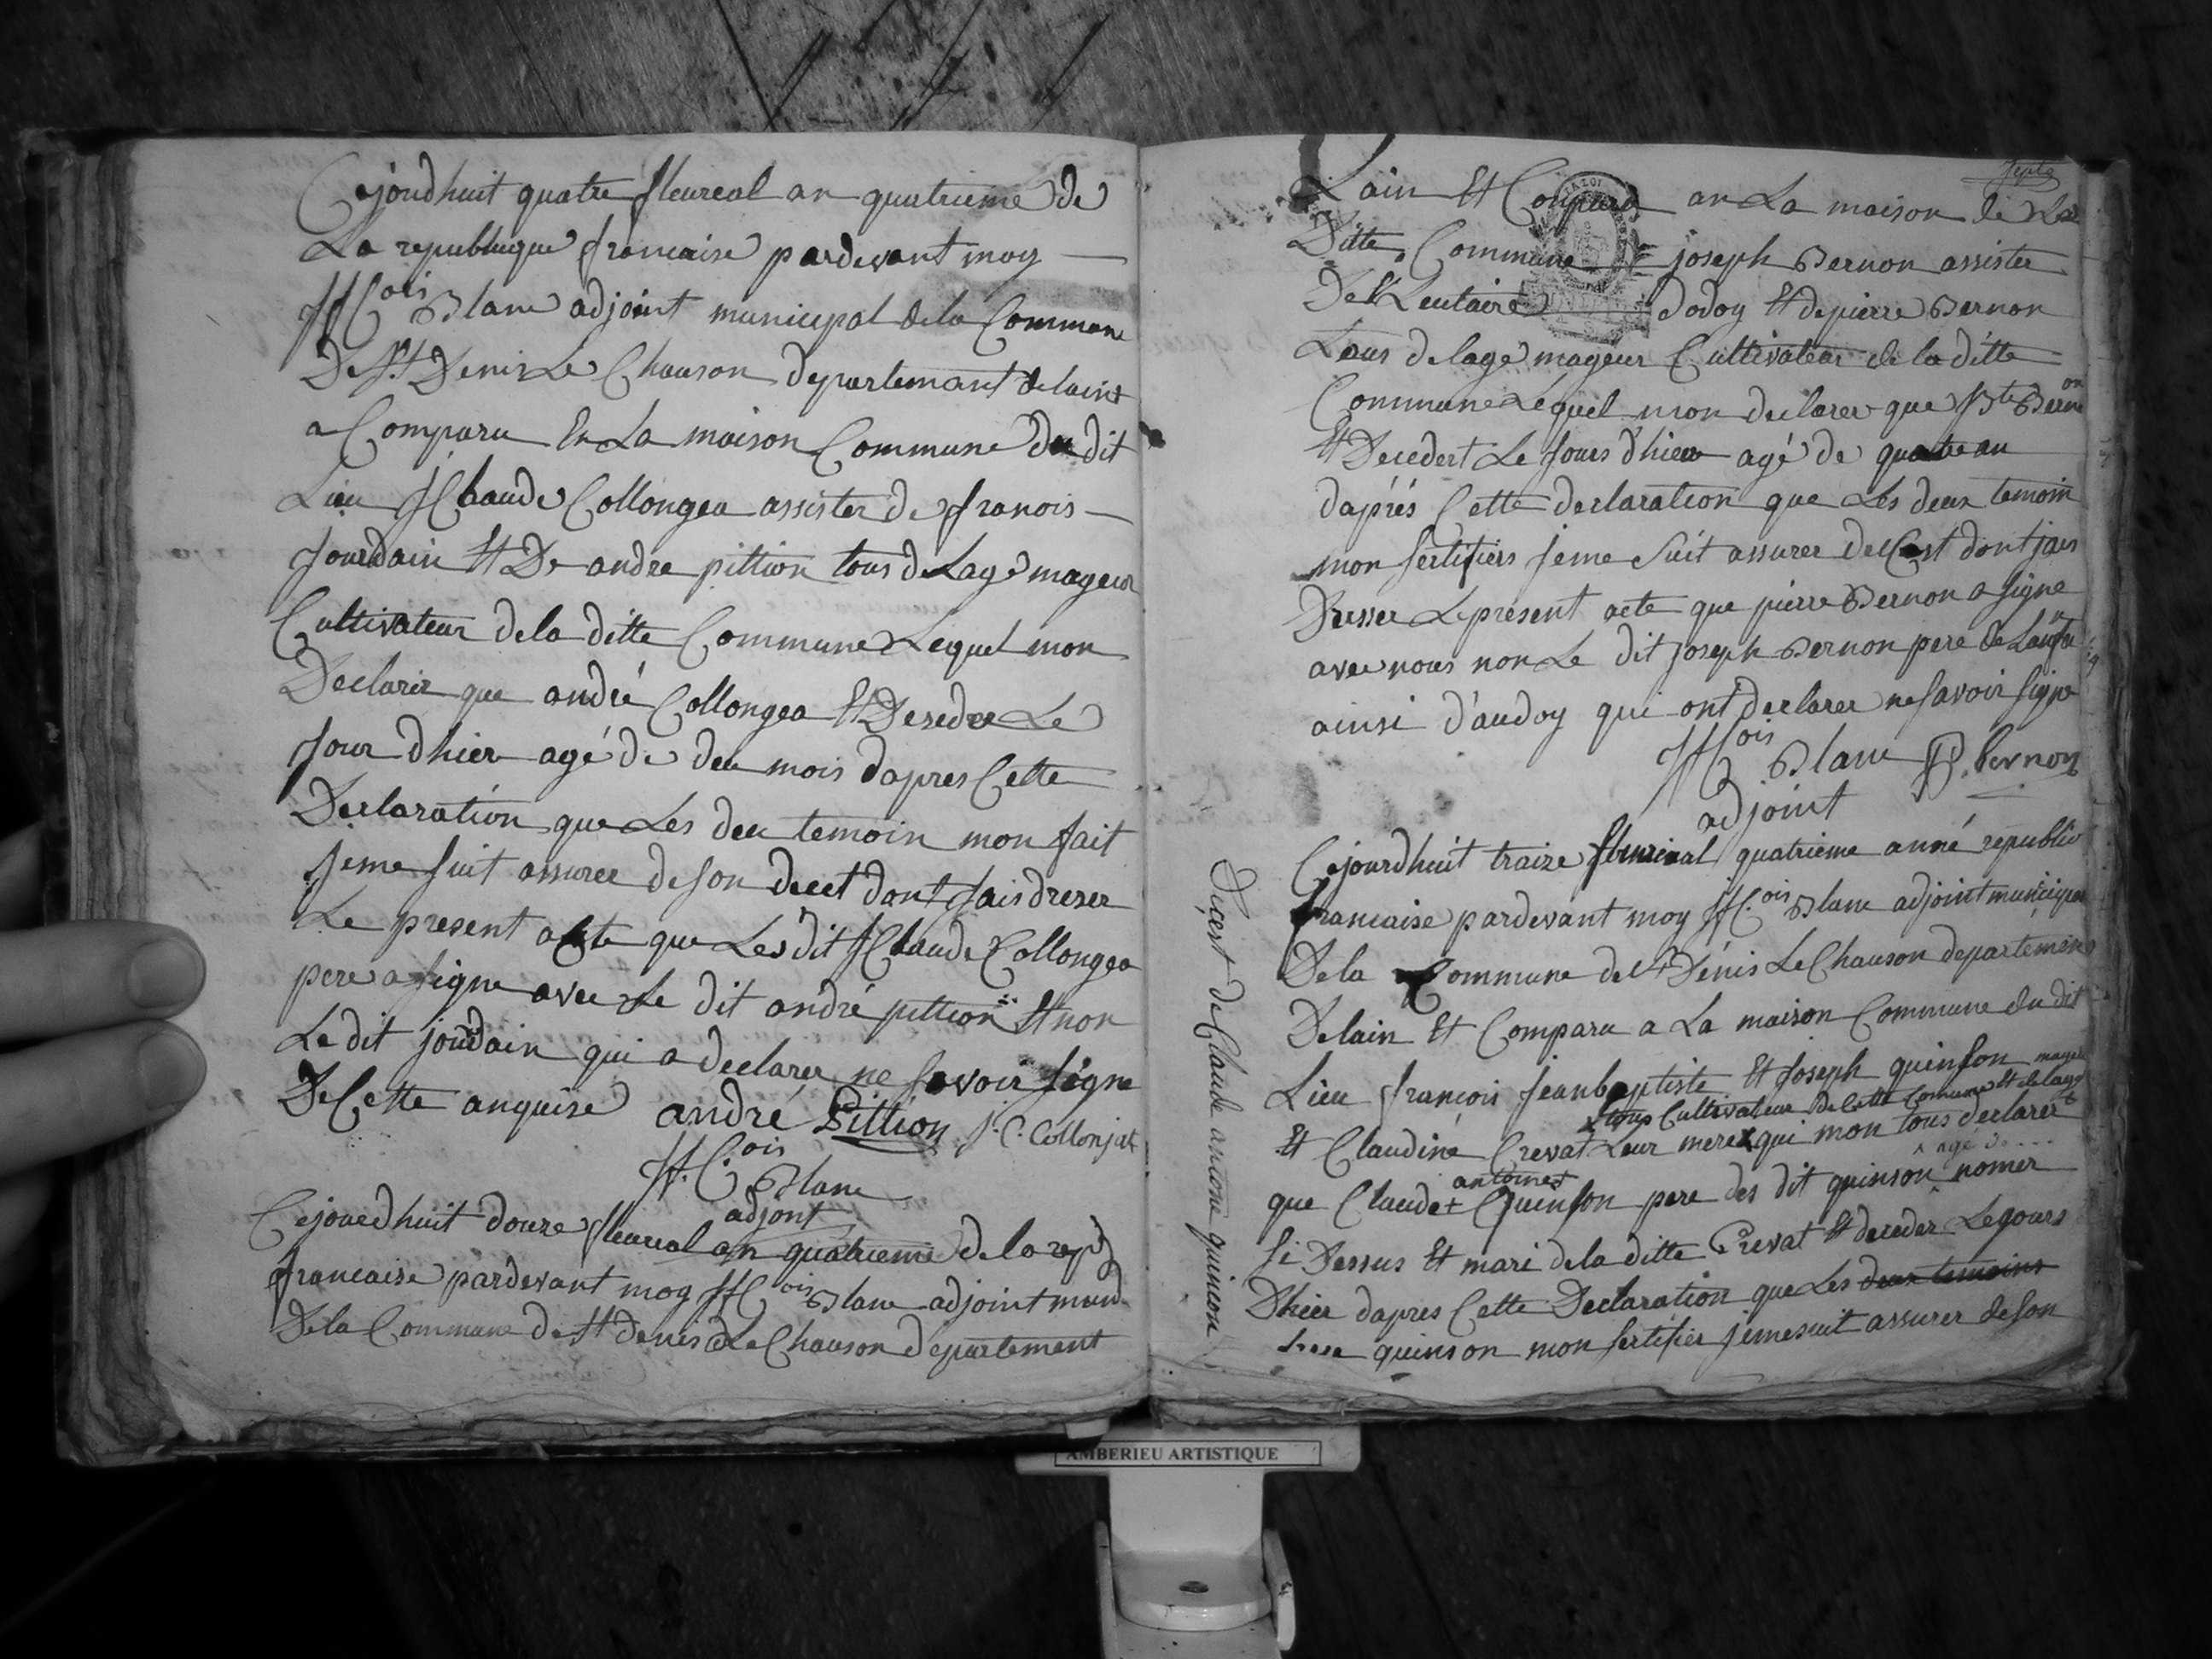 Cejoudhuit quatre fleureal an quatrieme de
La republuque francaise pardevant moy
Blanc adjoint municipal dela Commune
De St Denis Le Chauson departemant delaint
a Comparu En La maison Commune du dit
Lieu JClaude Collongea assister de franois
Jourdain Et De andre pittion tous deLage mageur
Cultivateur dela ditte Commune Lequel mon
Declarer que andré Collongea Et Deseder Le
Jour dhier agé de deu mois dapres Cette
Declaration que Les deu temoin mon fait
jeme suit assurer deson decet dont jais dreser
Le present acte que Les dit JClaude Collongea
pere a signe avec Le dit andré pittion Et non
Le dit jourdain qui a declarer ne savoir signe
De Cette anquise andré Pittion J.C. Collonjat
ois
Blanc
adjont
Cejouedhuit douze fleureal an quatrieme de la rep
francaise pardevant moy Blanc adjoint muni
Dela Commune de St denis Le Chauson departement
septe
Lain Et Comparu an La maison de La
Ditte Commune joseph Bernon assister
De Dodoy Et de pierre Bernon
Tous delage mageur Cultivateur de la ditte
Commune Lequel mon declarer que Bte Bernon
Et Decedert Le Jours dhier agé de quatre an
daprés Cette declaration que Les deux temoin
mon sertifiers jeme suit assurer delCest dont jais
Dresser Le present acte que pierre Bernon a signe
avec nous non Le dit Joseph Bernon pere de Lanfa
ainsi d'audoy qui ont declarer ne savoir signe
ois
Blanc P. bernon
adjoint
Cejourdhuit traize fleureal quatrieme anné republic
francaise pardevant moy Blanc adjoint municipal
Dela Commune de St Dénis Le Chauson departemen
Delain Et Comparu a La maison Commune du dit
Lieu francois Jeanbaptiste Et Joseph quinson mageur
tous Cultivateur de Cette Comune Et delage
Et Claudine Crevat Leur mere x qui mon tous declarer
antoine age de ....
que Claude + Quinson pere des dit quinson nomer
si Dessus Et mari dela ditte Crevat Et deceder Le jours
Dhier dapres Cette Declaration que Les deux temoins
quinson mon sertifier jemesuit assurer deson
Decest de Claude antoine quinson
AMBERIEU ARTISTIQUE